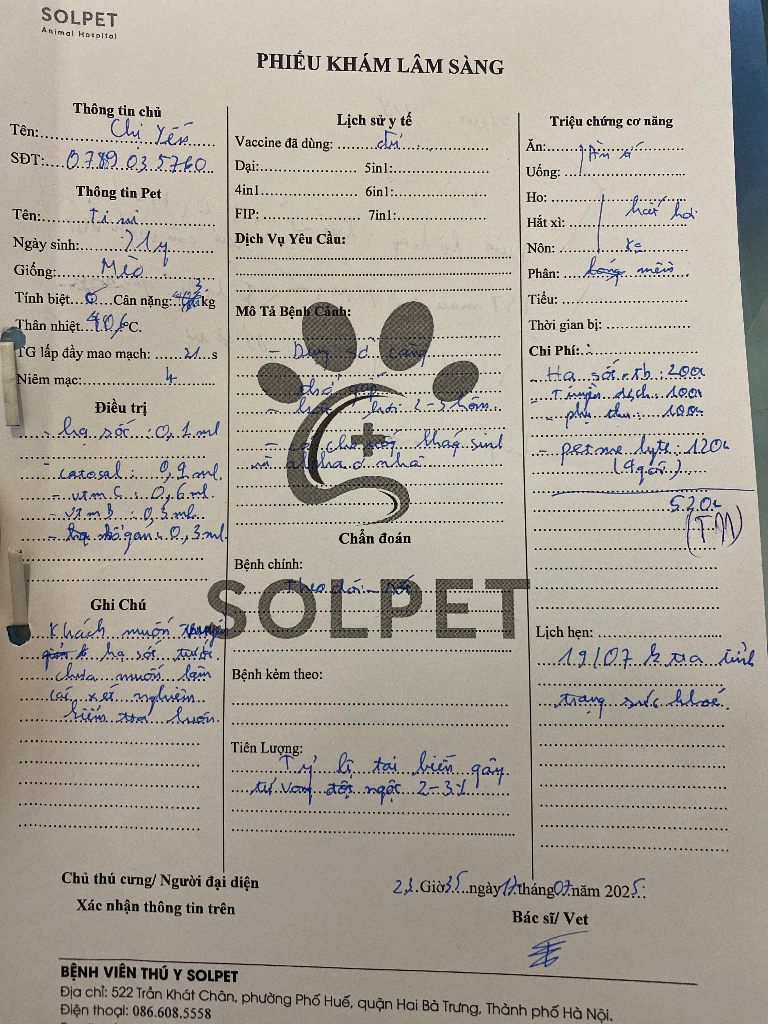 SOLPET
Animal Hospital
PHIẾU KHÁM LÂM SÀNG
Thông tin chủ
Tên: Chị Yến
SĐT: 0789035760
Thông tin Pet
Tên:
Ngày sinh: 71y
Giống: Mèo
Tính biệt Cân nặng: kg
Thân nhiệt 40,6°C.
TG lấp đầy mao mạch: 21 s
Niêm mạc: 4
Điều trị
- hạ sốt : 0,1 ml
- catosal : 0,9 ml.
- vtm C : 0,6 ml.
- vtm B : 0,3 ml.
- bổ gan : 0,3 ml.
Ghi Chú
Khách muốn
hạ sốt trước
chưa muốn làm
các xét nghiệm
kiểm tra luôn.
Lịch sử y tế
Vaccine đã dùng: đủ
Dại: 5in1:
4in1 6in1:
FIP: 7in1:
Dịch Vụ Yêu Cầu:
Mô Tả Bệnh Cảnh:
- Dùng
- thở gấp
- hắt hơi 2-3 hôm
- cho uống kháng sinh
và alpha ở nhà
Chẩn đoán
Bệnh chính:
Theo dõi - sốt
Bệnh kèm theo:
Tiên Lượng:
Tỷ lệ tai biến gây
tử vong đột ngột 2-3%
Triệu chứng cơ năng
Ăn: Ăn ít
Uống:
Ho:
Hắt xì: hắt hơi
Nôn: K
Phân: mềm
Tiểu:
Thời gian bị:
Chi Phí:
- Hạ sốt + tb : 200k
- Truyền dịch : 100k
- phụ thu : 100k
- permelyte : 120k
(4 gói)
520k
(TM)
Lịch hẹn:
19/07 k tra tình
trạng sức khoẻ.
Chủ thú cưng/ Người đại diện
Xác nhận thông tin trên
23 Giờ 35 ngày 17 tháng 07 năm 2025
Bác sĩ/ Vet
SOLPET
BỆNH VIỆN THÚ Y SOLPET
Địa chỉ: 522 Trần Khát Chân, phường Phố Huế, quận Hai Bà Trưng, Thành phố Hà Nội.
Điện thoại: 086.608.5558